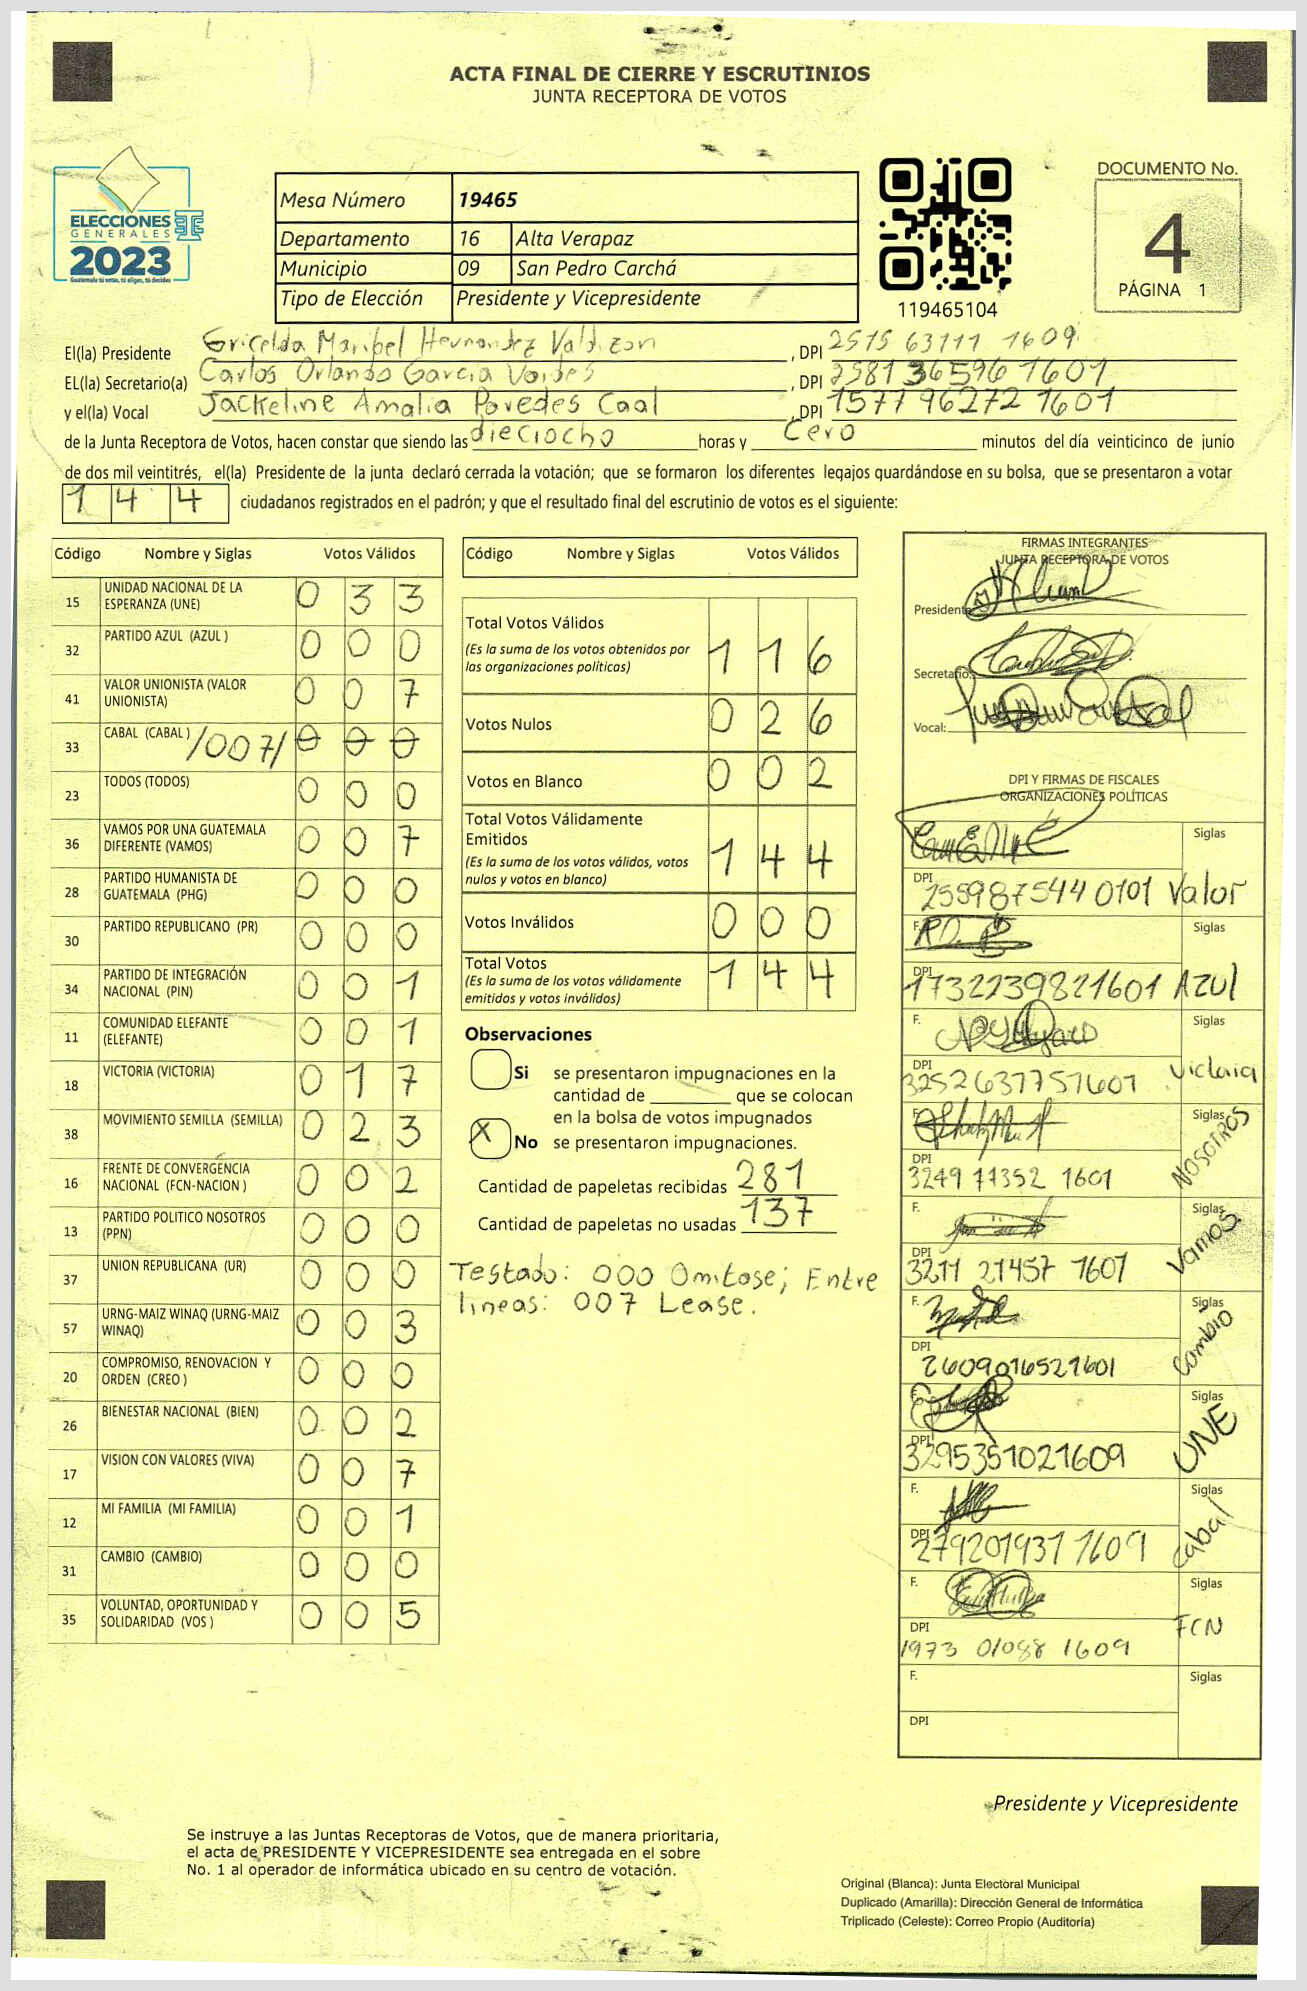 ACTA FINAL DE CIERRE Y ESCRUTINIOS
JUNTA RECEPTORA DE VOTOS
ELECCIONES
GENERALES
2023
Guatemala tú votas, tú eliges, tú decides
Mesa Número 19465
Departamento 16 Alta Verapaz
Municipio 09 San Pedro Carchá
Tipo de Elección Presidente y Vicepresidente
119465104
DOCUMENTO No.
4
PÁGINA 1
El(la) Presidente Gricelda Maribel Hernandez Valdizon , DPI 2515 63111 1609
EL(la) Secretario(a) Carlos Orlando Garcia Valdes , DPI 2581 36596 1601
y el(la) Vocal Jackeline Amalia Paredes Caal , DPI 1577 96272 1601
de la Junta Receptora de Votos, hacen constar que siendo las dieciocho horas y Cero minutos del día veinticinco de junio
de dos mil veintitrés, el(la) Presidente de la junta declaró cerrada la votación; que se formaron los diferentes legajos guardándose en su bolsa, que se presentaron a votar
1 4 4 ciudadanos registrados en el padrón; y que el resultado final del escrutinio de votos es el siguiente:
Código Nombre y Siglas Votos Válidos
15 UNIDAD NACIONAL DE LA ESPERANZA (UNE) 0 3 3
32 PARTIDO AZUL (AZUL ) 0 0 0
41 VALOR UNIONISTA (VALOR UNIONISTA) 0 0 7
33 CABAL (CABAL ) /007/ 0 0 0
23 TODOS (TODOS) 0 0 0
36 VAMOS POR UNA GUATEMALA DIFERENTE (VAMOS) 0 0 7
28 PARTIDO HUMANISTA DE GUATEMALA (PHG) 0 0 0
30 PARTIDO REPUBLICANO (PR) 0 0 0
34 PARTIDO DE INTEGRACIÓN NACIONAL (PIN) 0 0 1
11 COMUNIDAD ELEFANTE (ELEFANTE) 0 0 1
18 VICTORIA (VICTORIA) 0 1 7
38 MOVIMIENTO SEMILLA (SEMILLA) 0 2 3
16 FRENTE DE CONVERGENCIA NACIONAL (FCN-NACION ) 0 0 2
13 PARTIDO POLITICO NOSOTROS (PPN) 0 0 0
37 UNION REPUBLICANA (UR) 0 0 0
57 URNG-MAIZ WINAQ (URNG-MAIZ WINAQ) 0 0 3
20 COMPROMISO, RENOVACION Y ORDEN (CREO ) 0 0 0
26 BIENESTAR NACIONAL (BIEN) 0 0 2
17 VISION CON VALORES (VIVA) 0 0 7
12 MI FAMILIA (MI FAMILIA) 0 0 1
31 CAMBIO (CAMBIO) 0 0 0
35 VOLUNTAD, OPORTUNIDAD Y SOLIDARIDAD (VOS ) 0 0 5
Código Nombre y Siglas Votos Válidos
Total Votos Válidos
(Es la suma de los votos obtenidos por
las organizaciones políticas) 1 1 6
Votos Nulos 0 2 6
Votos en Blanco 0 0 2
Total Votos Válidamente
Emitidos
(Es la suma de los votos válidos, votos
nulos y votos en blanco) 1 4 4
Votos Inválidos 0 0 0
Total Votos
(Es la suma de los votos válidamente
emitidos y votos inválidos) 1 4 4
Observaciones
Si se presentaron impugnaciones en la
cantidad de ________ que se colocan
en la bolsa de votos impugnados
X No se presentaron impugnaciones.
Cantidad de papeletas recibidas 281
Cantidad de papeletas no usadas 137
Testado: 000 Omitase; Entre
lineas: 007 Lease.
FIRMAS INTEGRANTES
JUNTA RECEPTORA DE VOTOS
Presidente
Secretario:
Vocal:
DPI Y FIRMAS DE FISCALES
ORGANIZACIONES POLÍTICAS
Siglas
DPI 2559875440101 Valor
F. Siglas
DPI 1732239821601 AZUL
F. Siglas
DPI 3252637751601 Victoria
F. Siglas
DPI 3249 11352 1601 NOSOTROS
F. Siglas
DPI 3211 21457 1601 Vamos
F. Siglas
DPI 2609016521601 Cambio
F. Siglas
DPI 3295351021609 UNE
F. Siglas
DPI 279201931 1609 Cabal
F. Siglas
DPI 1973 01088 1609 FCN
F. Siglas
DPI
Presidente y Vicepresidente
Se instruye a las Juntas Receptoras de Votos, que de manera prioritaria,
el acta de PRESIDENTE Y VICEPRESIDENTE sea entregada en el sobre
No. 1 al operador de informática ubicado en su centro de votación.
Original (Blanca): Junta Electoral Municipal
Duplicado (Amarilla): Dirección General de Informática
Triplicado (Celeste): Correo Propio (Auditoría)